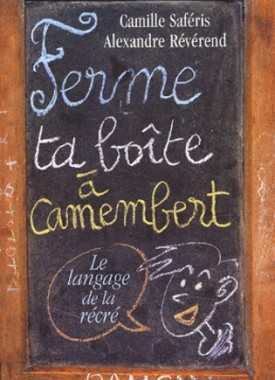 Camille Saféris
Alexandre Révérend
Ferme
ta boîte
à
camembert
Le
langage
de la
récré